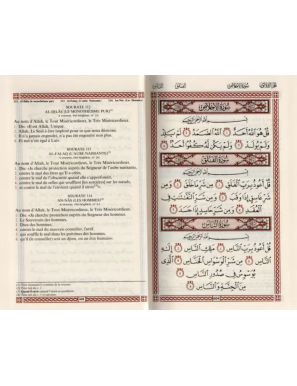 SOURATE 112
AL-IḪLÂṢ (LE MONOTHÉISME PUR)
Au nom d'Allah, le Tout Miséricordieux, le Très Miséricordieux.
1. Dis: «Il est Allah, Unique.
2. Allah, Le Seul à être imploré pour ce que nous désirons.
3. Il n'a jamais engendré, n'a pas été engendré non plus.
4. Et nul n'est égal à Lui».
SOURATE 113
AL-FALAQ (L'AUBE NAISSANTE)
Au nom d'Allah, le Tout Miséricordieux, le Très Miséricordieux.
1. Dis: «Je cherche protection auprès du Seigneur de l'aube naissante,
2. contre le mal des êtres qu'Il a créés,
3. contre le mal de l'obscurité quand elle s'approfondit,
4. contre le mal de celles qui soufflent (les sorcières) sur les nœuds,
5. et contre le mal de l'envieux quand il envie».
SOURATE 114
AN-NÂS (LES HOMMES)
Au nom d'Allah, le Tout Miséricordieux, le Très Miséricordieux.
1. Dis: «Je cherche protection auprès du Seigneur des hommes.
2. Le Souverain des hommes,
3. Dieu des hommes,
4. contre le mal du mauvais conseiller, furtif,
5. qui souffle le mal dans les poitrines des hommes,
6. qu'il (le conseiller) soit un djinn, ou un être humain».
سُورَةُ الإِخْلَاصِ
قُلْ هُوَ اللَّهُ أَحَدٌ ١ اللَّهُ الصَّمَدُ ٢ لَمْ يَلِدْ
وَلَمْ يُولَدْ ٣ وَلَمْ يَكُن لَّهُ كُفُوًا أَحَدٌ ٤
سُورَةُ الفَلَقِ
قُلْ أَعُوذُ بِرَبِّ الْفَلَقِ ١ مِن شَرِّ مَا خَلَقَ ٢ وَمِن
شَرِّ غَاسِقٍ إِذَا وَقَبَ ٣ وَمِن شَرِّ النَّفَّاثَاتِ
فِي الْعُقَدِ ٤ وَمِن شَرِّ حَاسِدٍ إِذَا حَسَدَ ٥
سُورَةُ النَّاسِ
قُلْ أَعُوذُ بِرَبِّ النَّاسِ ١ مَلِكِ النَّاسِ ٢
إِلَٰهِ النَّاسِ ٣ مِن شَرِّ الْوَسْوَاسِ الْخَنَّاسِ ٤ الَّذِي
يُوَسْوِسُ فِي صُدُورِ النَّاسِ ٥
مِنَ الْجِنَّةِ وَالنَّاسِ ٦